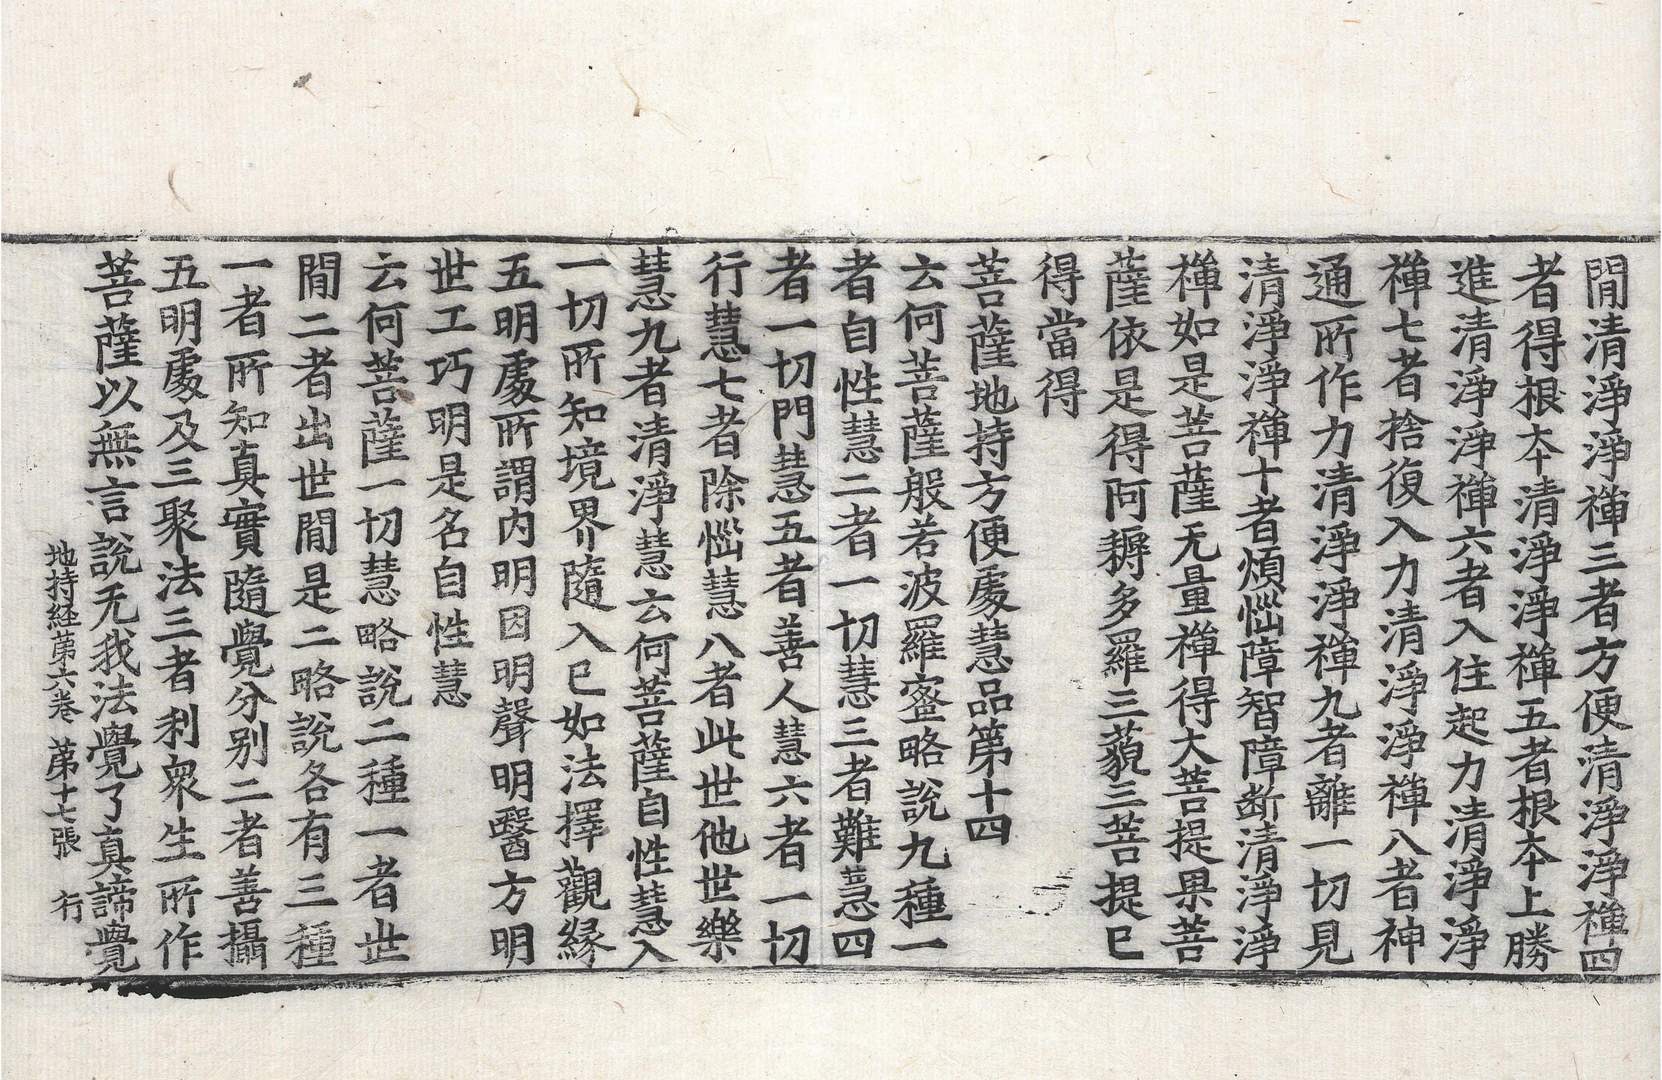 閒清淨淨禪三者方便清淨淨禪四
者得根夲清淨淨禪五者根夲上勝
進清淨淨禪六者入住起力清淨淨
禪七者捨復入力清淨淨禪八者神
通所作力清淨淨禪九者離一切見
清淨淨禪十者煩惱障智障断清淨淨
禪如是菩薩无量禪得大菩提果菩
薩依是得阿耨多羅三藐三菩提已
得當得
菩薩地持方便處慧品第十四
云何菩薩般若波羅蜜略說九種一
者自性慧二者一切慧三者難慧四
者一切門慧五者善人慧六者一切
行慧七者除惱慧八者此世他世樂
慧九者清淨慧云何菩薩自性慧入
一切所知境界隨入已如法擇觀緣
五明處所謂内明因明聲明醫方明
世工巧明是名自性慧
云何菩薩一切慧略說二種一者世
閒二者出世閒是二略說各有三種
一者所知真實隨覺分别二者善攝
五明處及三聚法三者利衆生所作
菩薩以無言說无我法覺了真諦覺
地持経苐六卷 苐十七張 行